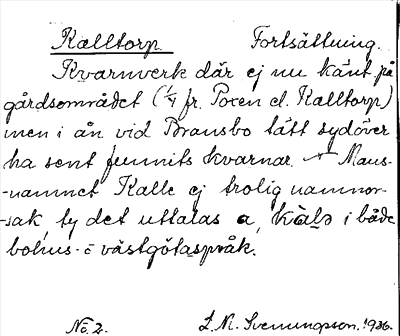 Kalltorp. Fortsättning.
Kvarnverk där ej nu känt på
gårdsområdet (1/4 fr. Poxen el. Kalltorp)
men i ån vid Bransbo tätt sydöver
ha sent funnits kvarnar. – Mans-
-namnet Kalle ej trolig namnor-
-sak, ty det uttalas a, kàlə i både
bohus- o västgötaspråk.
No. 2. L.N. Svenungsson. 1936.